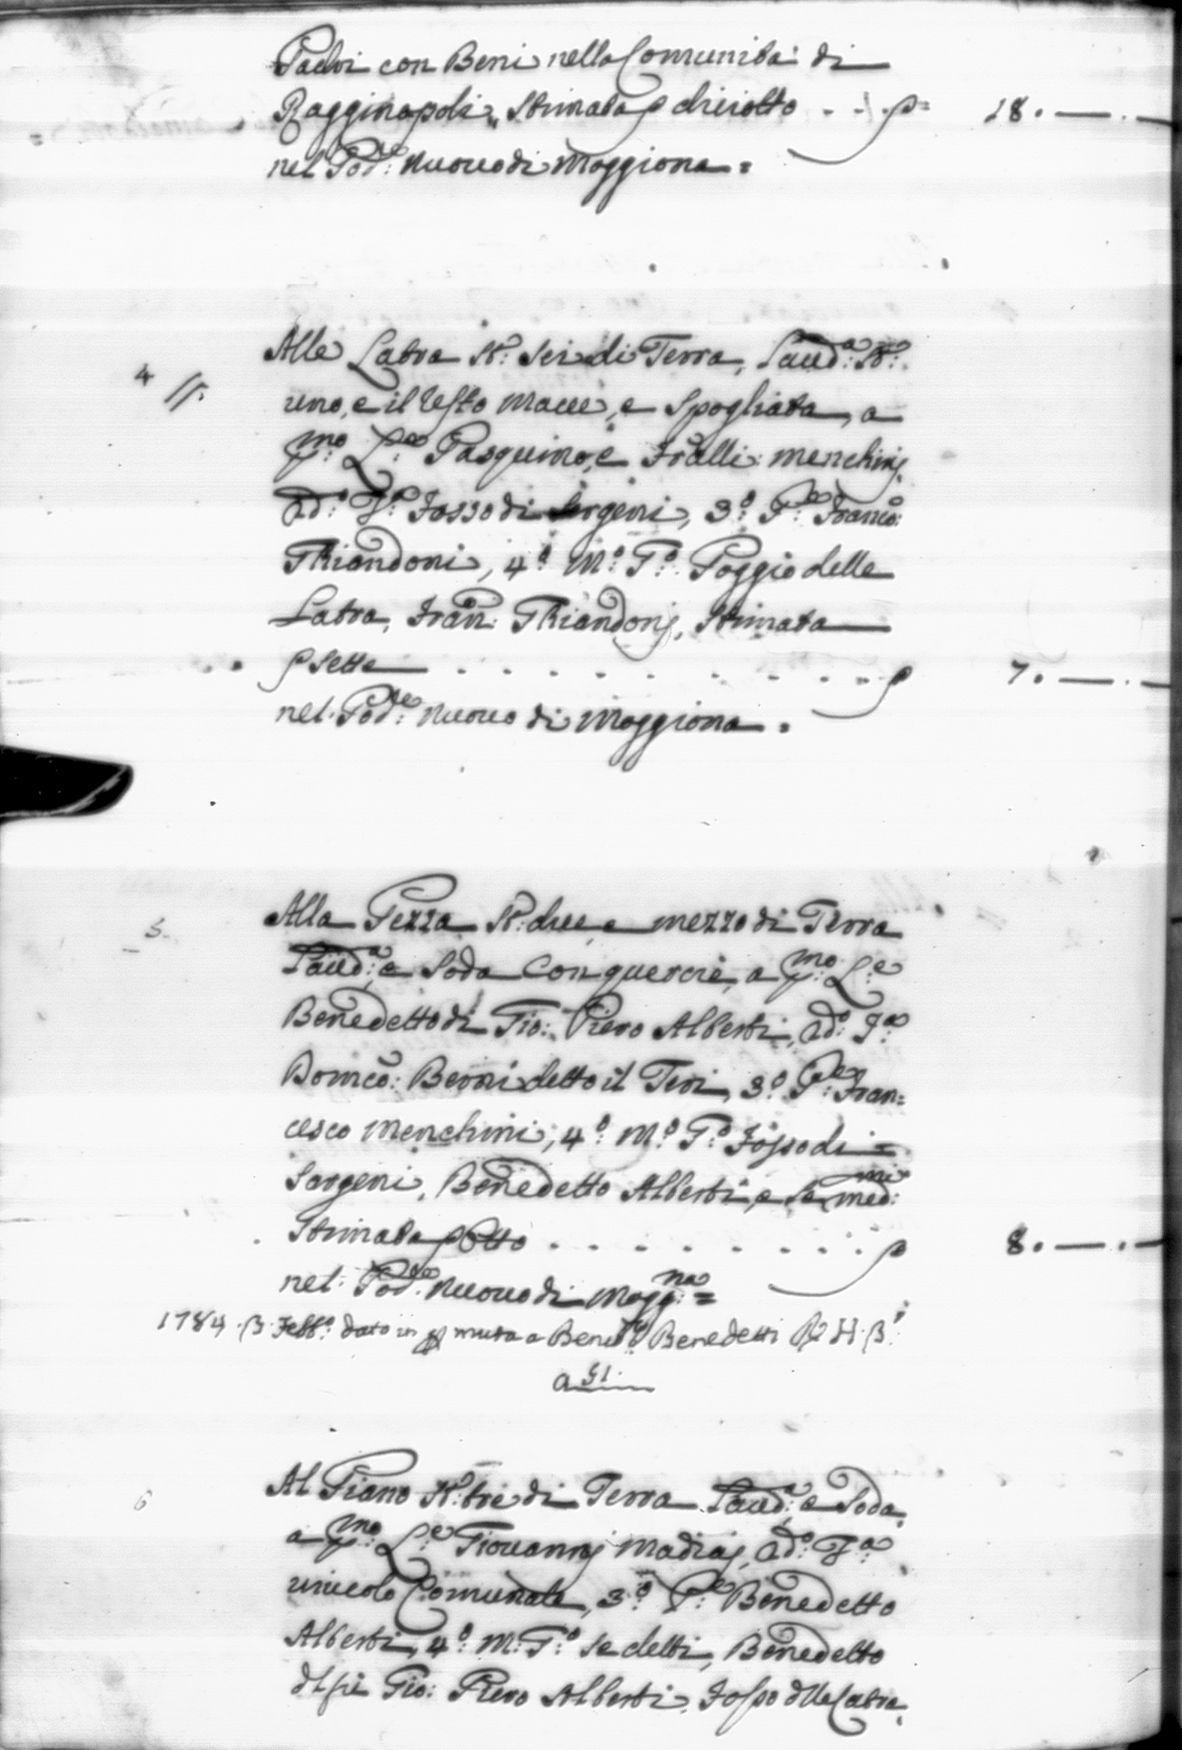 Padri con Beni nella Comunità di
Ragginopoli, Stimata p diciotto . . . p= 18. — . —
nel Pod.re Nuovo di Moggiona =
4 Alle Latra St: Sei di Terra, Laud.a St:
uno, e il resto Macie, e Spogliata, a
p.mo L.e Pasquino, e Fralli: Menchinj,
2d.o Fosso di Sorgeni, 3.o P.e Franco:
Thiandoni, 4.o M.o T.o Poggio delle
Latra, Fran: Thiandonj, Stimata
p Sette . . . . . . . . . p 7. — . —
nel Pod.re Nuovo di Moggiona =
5 Alla Pezza St: due, e mezzo di Terra
Laud.a, e Soda con quercie, a p.mo L.e
Benedetto di Gio: Piero Alberti, 2d.o
Domco: Berni detto il Teri, 3.o P.e Fran=
cesco Menchini, 4.o M.o T.o Fosso di =
Sorgeni, Benedetto Alberti, e Se med:mi
Stimata p Otto . . . . . . . . p 8. — . —
nel Pod.re Nuovo di Magg:na =
1784. Febb.o dato in muta a Bened.o Benedetti
a 51.
6 Al Piano St: tre di Terra Laud.a, e Soda,
a p.mo L.e Giovannj Madiaj, 2d.o
viucolo Comunale, 3.o P.e Benedetto
Alberti, 4.o M: T.o Se detti, Benedetto
Gio: Piero Alberti, Fosso dlle Latra,